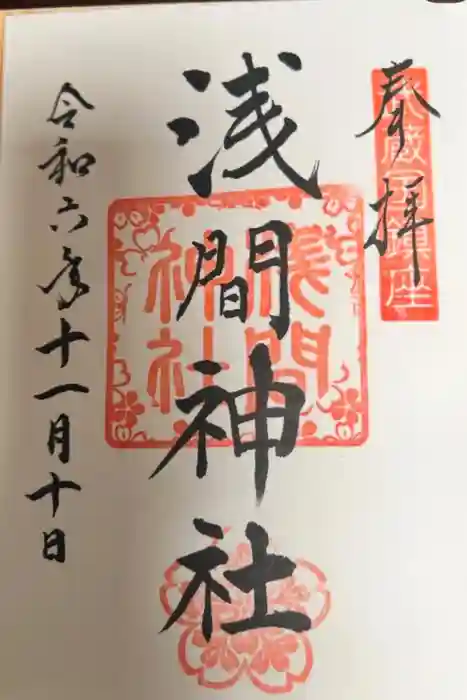 奉拝
武蔵国鎮座
浅間神社
浅間神社
令和六年十一月十日